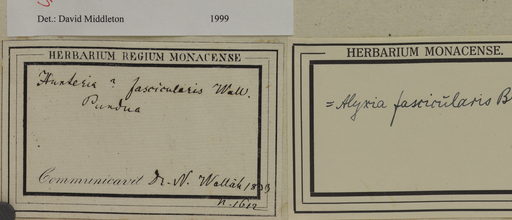 Det.: David Middleton 1999
HERBARIUM REGIUM MONACENSE
Hunteria ? fascicularis Wall.
Pundua
Communicavit Dr. N. Wallich 1833
n. 1612
HERBARIUM MONACENSE.
= Alyxia fascicularis B